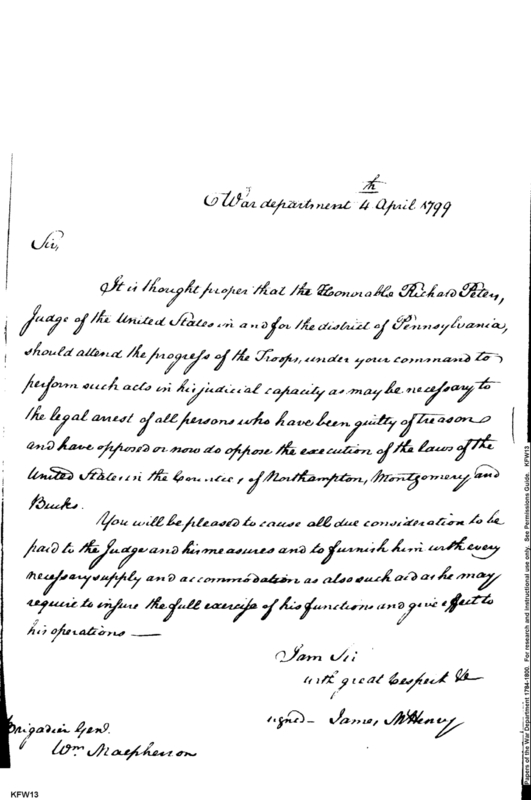 War department 4th April 1799
Sir,
It is thought proper that the Honorable Richard Peters,
Judge of the United States in and for the district of Pennsylvania,
should attend the progress of the Troops, under your command to
perform such acts in his judicial capacity as may be necessary to
the legal arrest of all persons who have been guilty of treason
and have opposed or now do oppose the execution of the laws of the
United States in the Counties of Northampton, Montgomery and
Bucks.
You will be pleased to cause all due consideration to be
paid to the Judge and his measures and to furnish him with every
necessary supply and accommodation as also such aid as he may
require to insure the full exercise of his functions and give effect to
his operations —
I am Sir
with great respect &c
signed – James McHenry
Brigadier Genl.
Wm Macpherson
KFW13
Papers of the War Department 1784-1800. For research and instructional use only. See Permissions Guide. KFW13